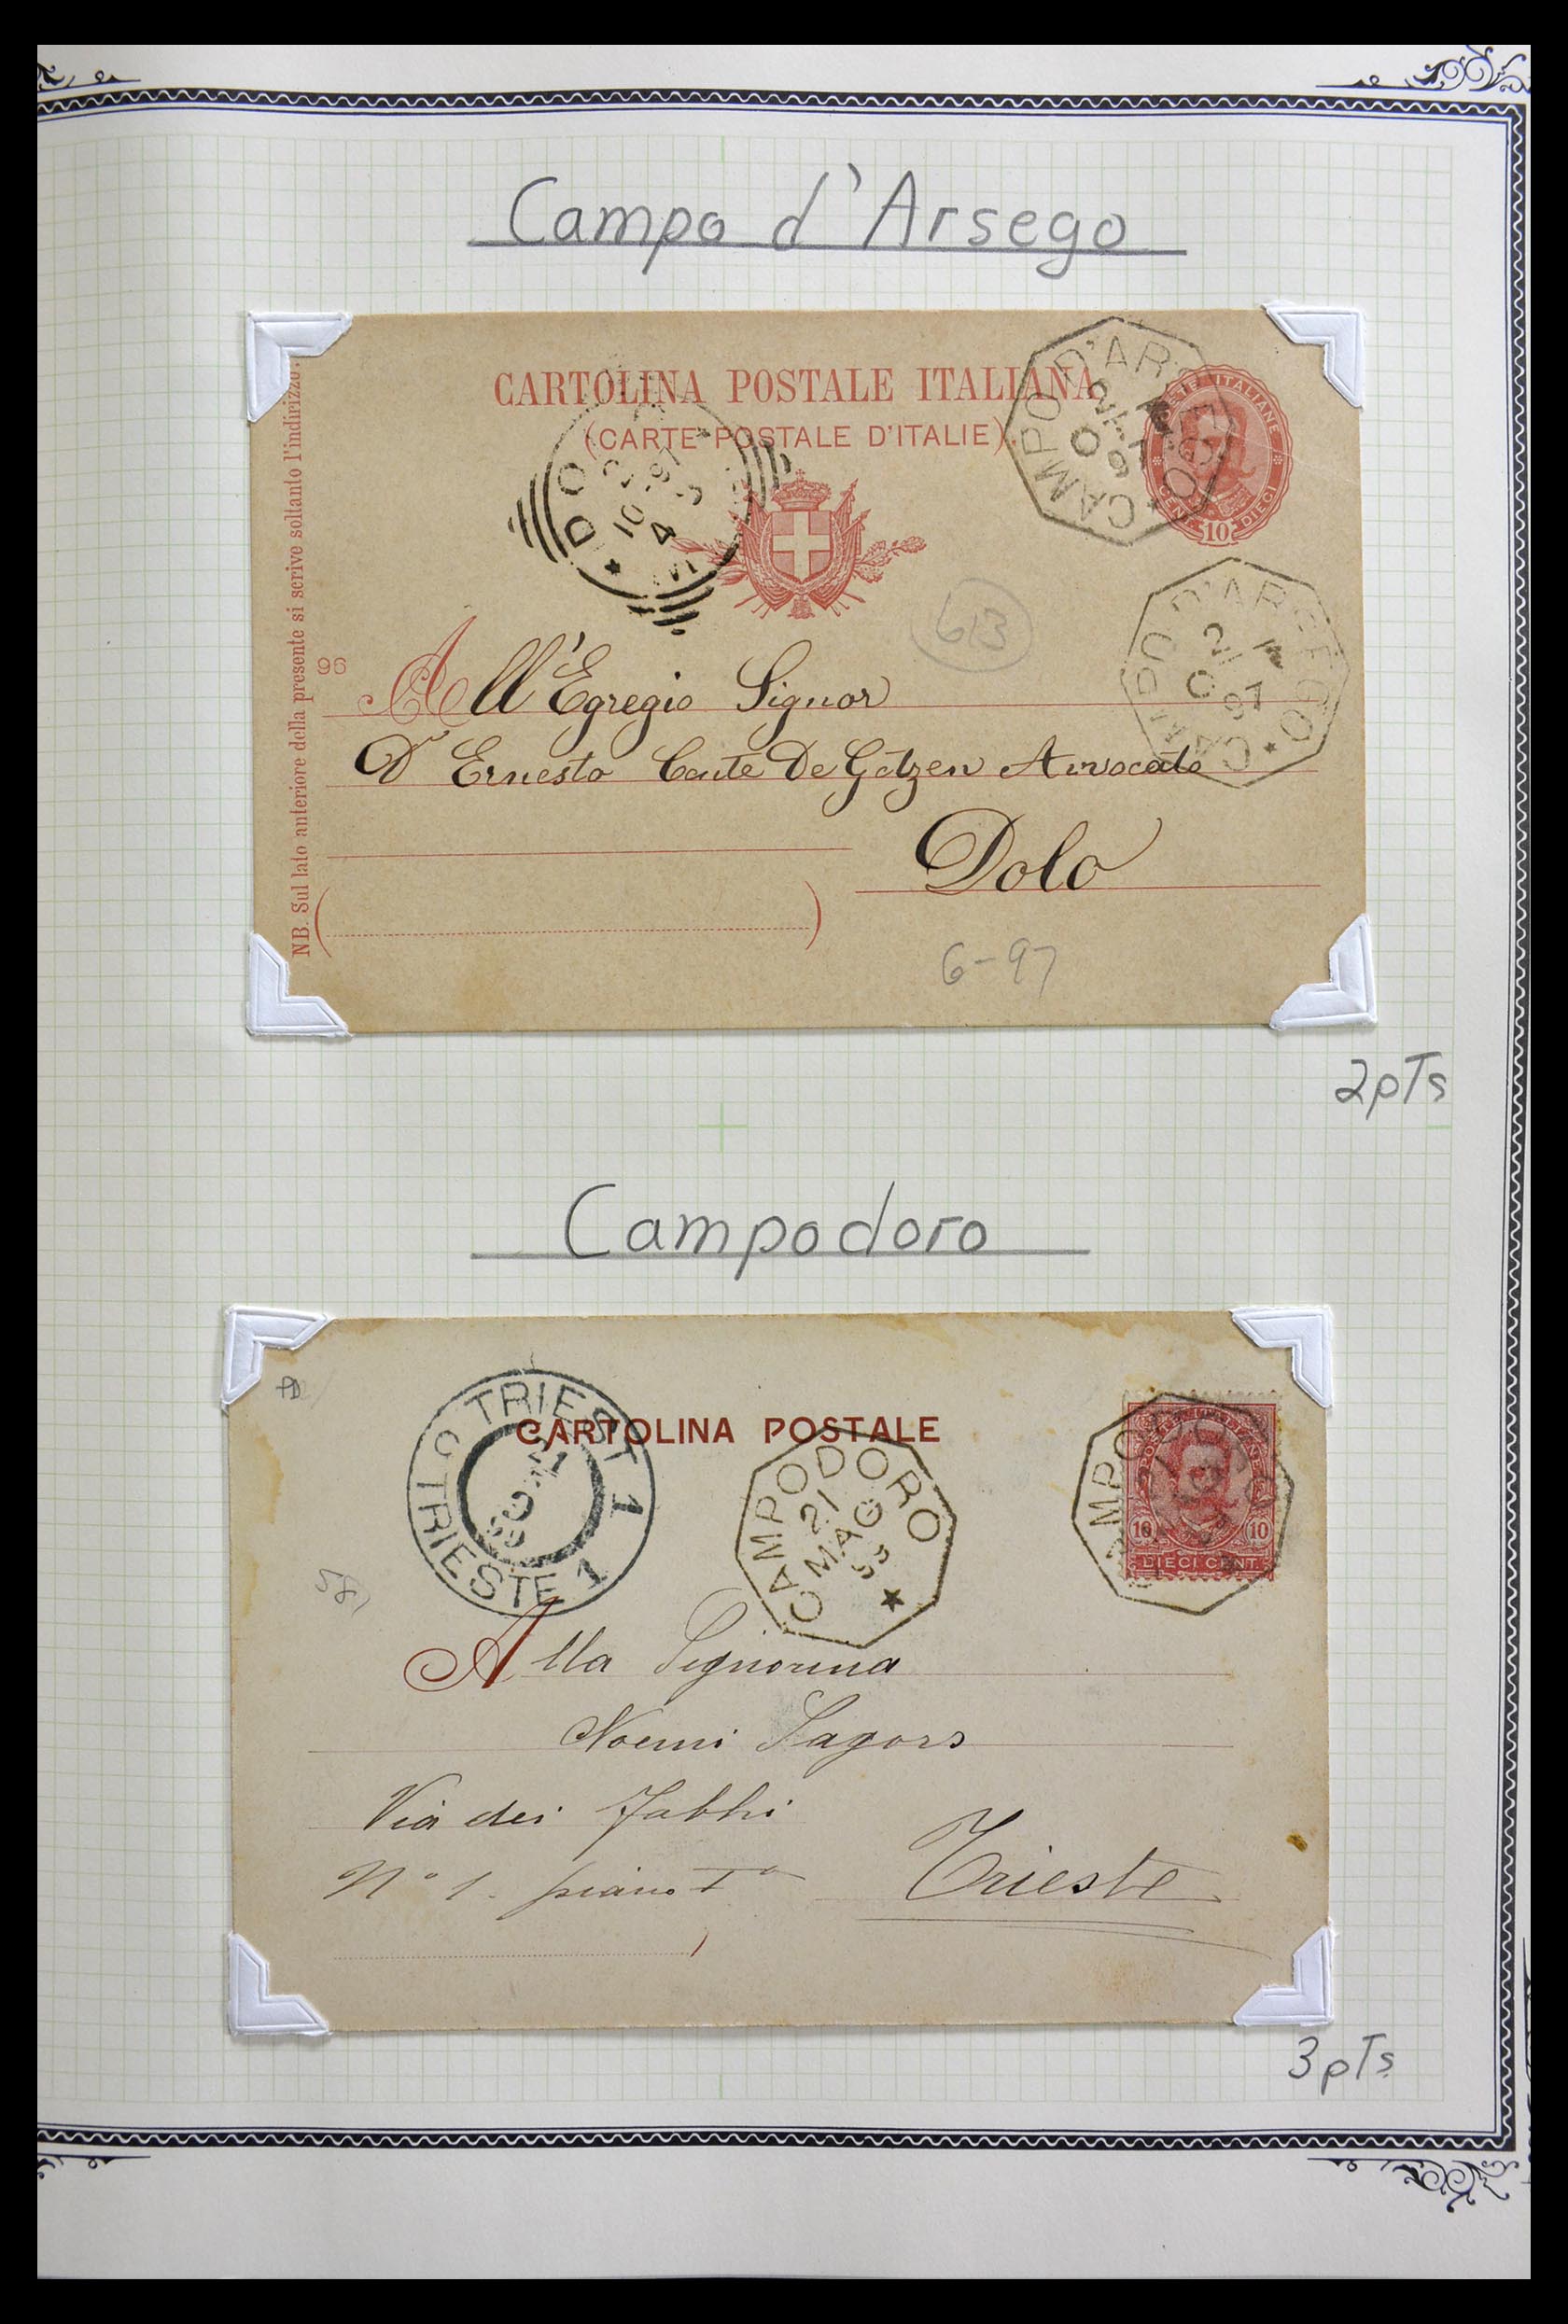 Campo d'Arsego
CARTOLINA POSTALE ITALIANA
(CARTE POSTALE D'ITALIE)
CAMPO D'ARSEGO
POSTE ITALIANE
CENT. 10 DIECI
DOLO
10-97
4 S
CAMPO D'ARSEGO
21
97
613
NB. Sul lato anteriore della presente si scrive soltanto l'indirizzo.
96
All'Egregio Signor
Dr Ernesto Conte De Götzen Avvocato
Dolo
6-97
2pTs
Campodoro
PD
CARTOLINA POSTALE
TRIEST 1
TRIESTE 1
CAMPODORO
21
MAG
93
MPODORO
POSTE ITALIANE
10 10
DIECI CENT.
581
Alla Signorina
Noemi Sagors
Via dei Fabbri
N° 1. piano I°
Trieste
3pTs